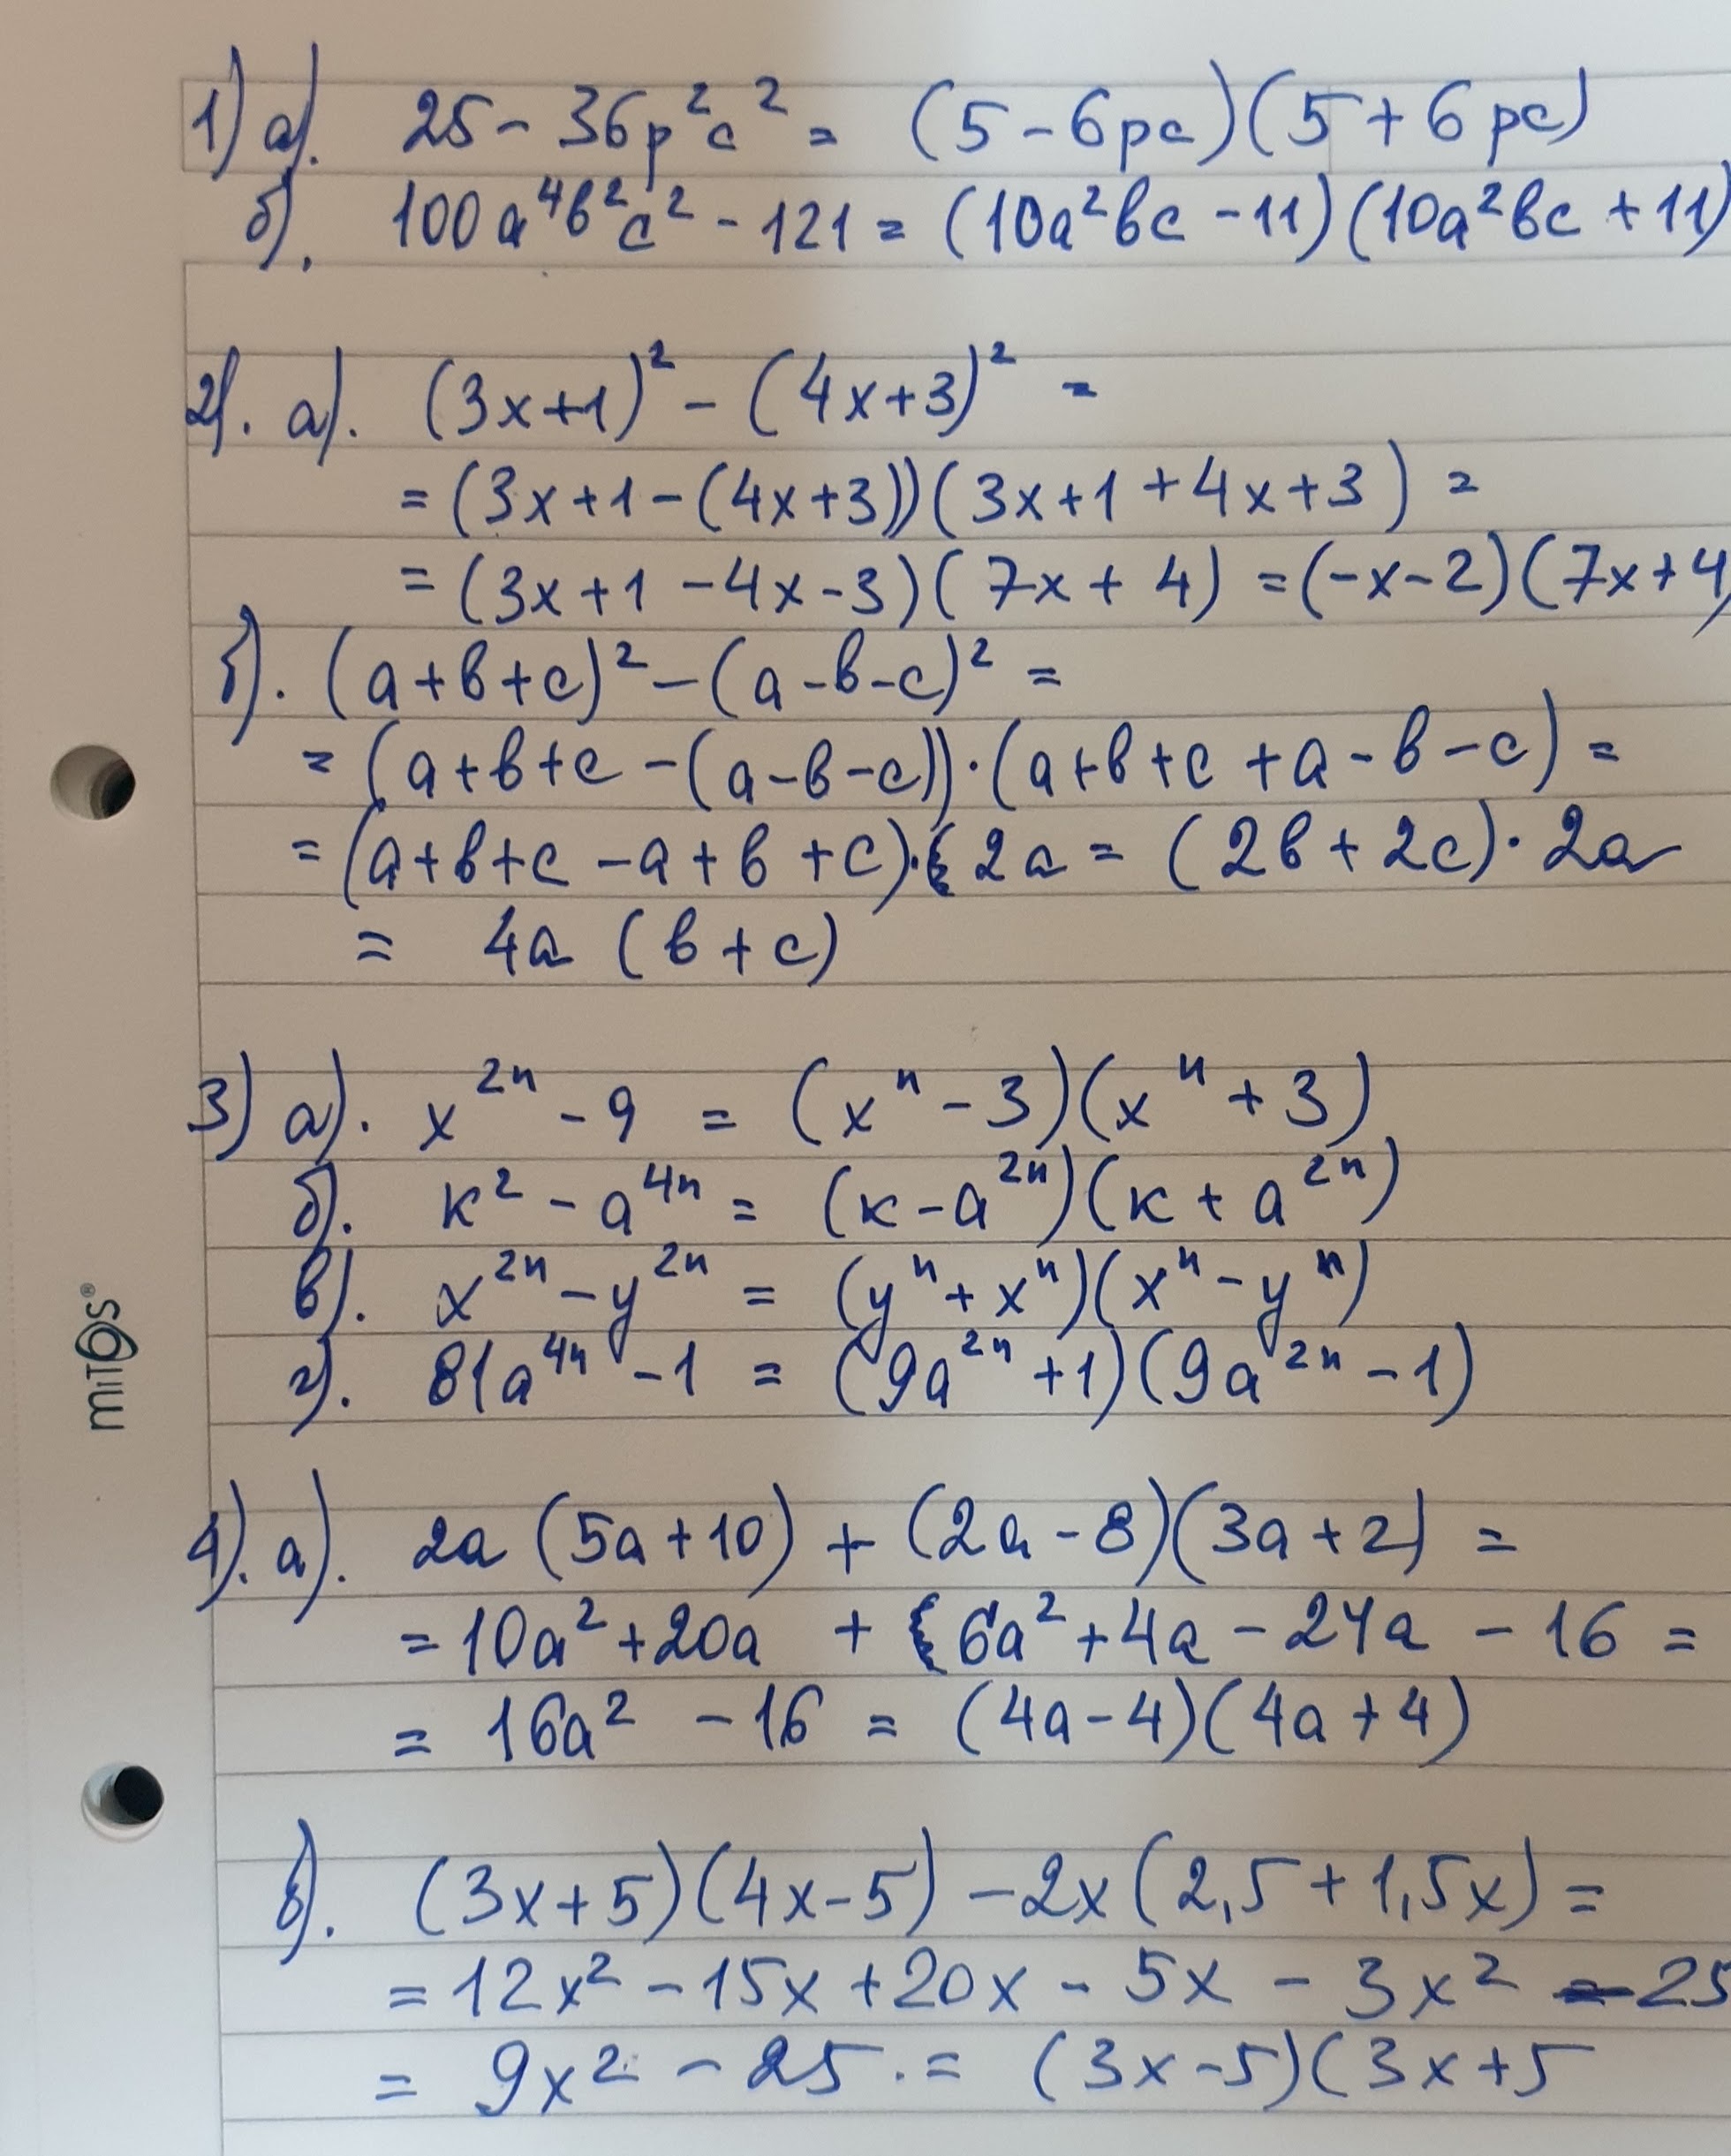 1) а). 25 - 36p²c² = (5 - 6pc)(5 + 6pc)
б). 100a⁴b²c² - 121 = (10a²bc - 11)(10a²bc + 11)
2). а). (3x+1)² - (4x+3)² =
= (3x+1-(4x+3))(3x+1+4x+3) =
= (3x+1-4x-3)(7x+4) = (-x-2)(7x+4)
б). (a+b+c)² - (a-b-c)² =
= (a+b+c-(a-b-c))·(a+b+c+a-b-c) =
= (a+b+c-a+b+c)·2a = (2b+2c)·2a
= 4a (b+c)
3) а). x²ⁿ - 9 = (xⁿ - 3)(xⁿ + 3)
б). к² - a⁴ⁿ = (к - a²ⁿ)(к + a²ⁿ)
в). x²ⁿ - y²ⁿ = (yⁿ + xⁿ)(xⁿ - yⁿ)
г). 81a⁴ⁿ - 1 = (9a²ⁿ + 1)(9a²ⁿ - 1)
mitos®
4). а). 2a (5a+10) + (2a-8)(3a+2) =
= 10a² + 20a + 6a² + 4a - 24a - 16 =
= 16a² - 16 = (4a-4)(4a+4)
б). (3x+5)(4x-5) - 2x(2,5+1,5x) =
= 12x² - 15x + 20x - 5x - 3x² - 25
= 9x² - 25 . = (3x-5)(3x+5